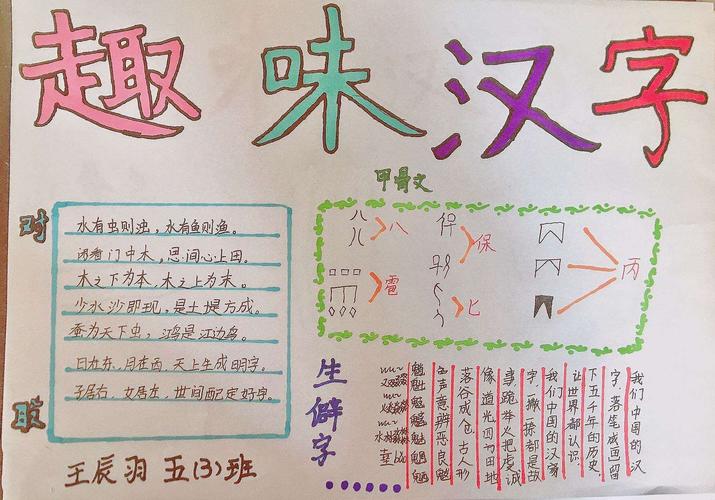 趣味汉字
甲骨文
对
水有虫则浊，水有鱼则渔。
闲看门中木，思间心上田。
木之下为本，木之上为末。
少水沙即现，是土堤方成。
蚕为天下虫，鸿是江边鸟。
日在东，月在西，天上生成明字。
子居右，女居左，世间配定好字。
王辰羽 五(3)班
八
保
丙
雹
匕
生僻字
我们中国的汉
字，落笔成画留
下五千年的历史，
让世界都认识，
我们中国的汉
字，一撇一捺都是故
事跪举火把虔诚
像道光四方田地
落谷成仓 古人形
声意辨恶良